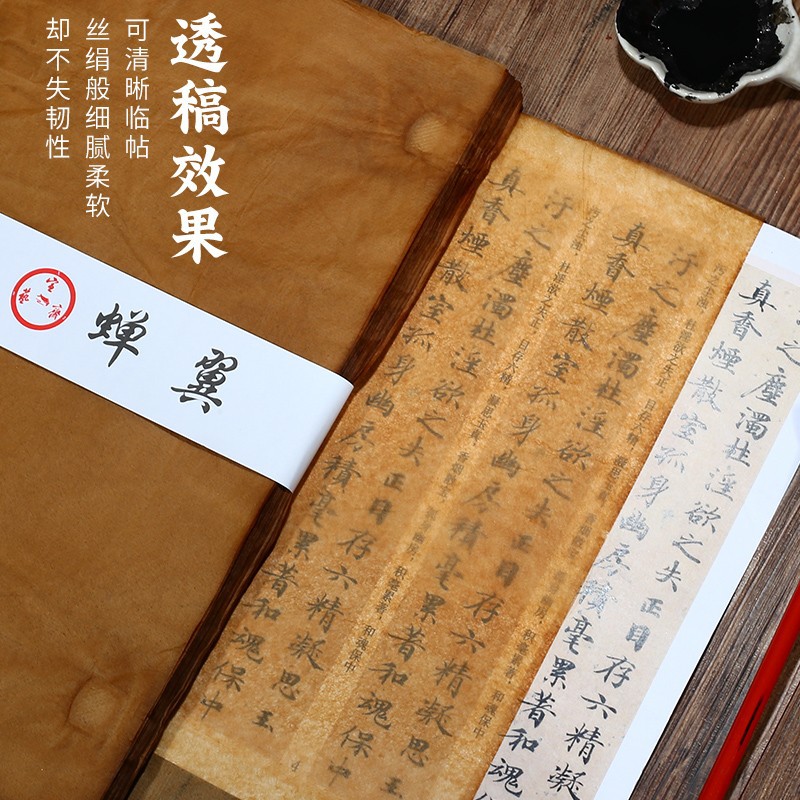 透稿效果
可清晰临帖
丝绢般细腻柔软
却不失韧性
蝉翼
之塵濁杜淫欲之失正目存六精凝
真香煙散室孤身幽房積毫累著和魂
汙之塵濁杜淫欲之失正目存六精凝思玉
真香煙散室孤身幽房積毫累著和魂保中
汙之塵濁杜淫欲之失正目存六精凝思玉
真香煙散室孤身幽房積毫累著和魂保中
4